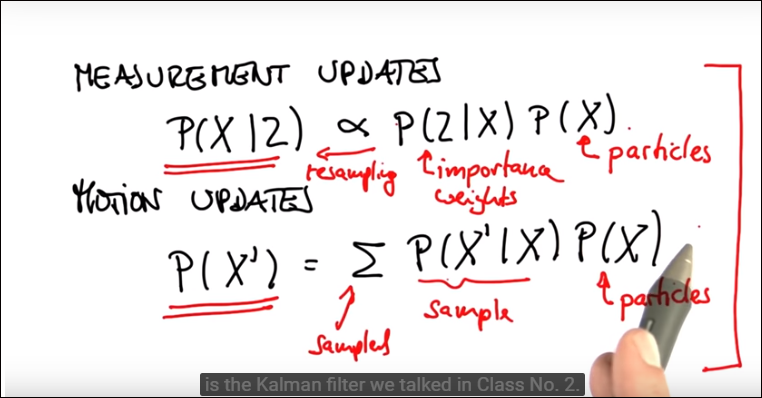 MEASUREMENT UPDATES
P(X|Z) ∝ P(Z|X) P(X)
resampling importance weights particles
MOTION UPDATES
P(X') = Σ P(X'|X) P(X)
samples sample particles
is the Kalman filter we talked in Class No. 2.